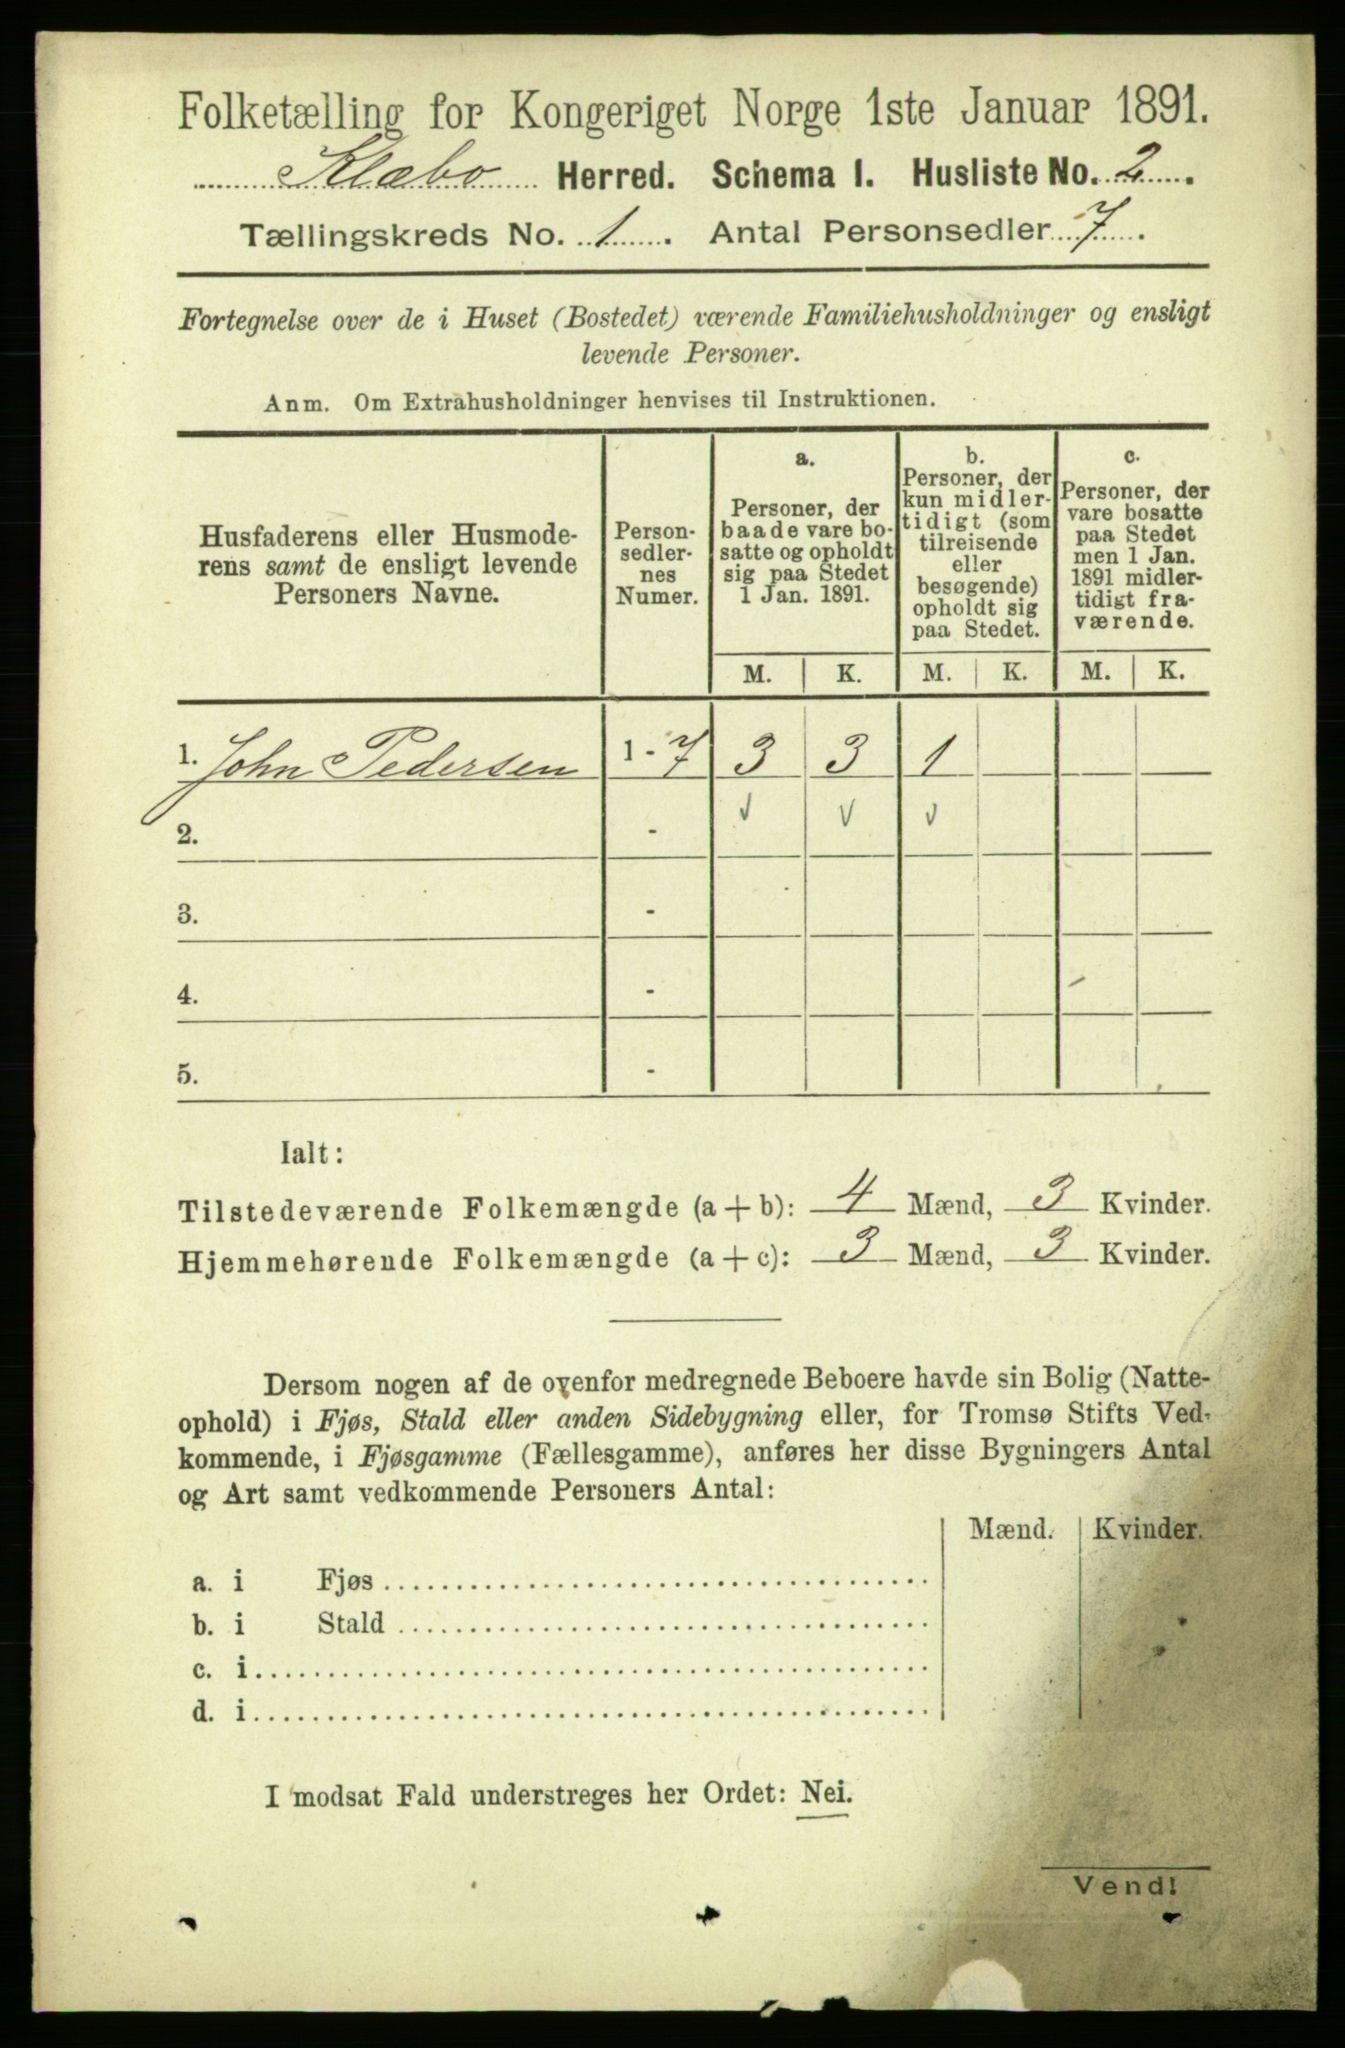 Folketælling for Kongeriget Norge 1ste Januar 1891.
Klæbo Herred. Schema I. Husliste No. 2.
Tællingskreds No. 1. Antal Personsedler 7.
Fortegnelse over de i Huset (Bostedet) værende Familiehusholdninger og ensligt
levende Personer.
Anm. Om Extrahusholdninger henvises til Instruktionen.
Husfaderens eller Husmode-
rens samt de ensligt levende
Personers Navne.
Person-
sedler-
nes
Numer.
a.
Personer, der
baade vare bo-
satte og opholdt
sig paa Stedet
1 Jan. 1891.
b.
Personer, der
kun midler-
tidigt (som
tilreisende
eller
besøgende)
opholdt sig
paa Stedet.
c.
Personer, der
vare bosatte
paa Stedet
men 1 Jan.
1891 midler-
tidigt fra-
værende.
M. K. M. K. M. K.
1. John Pedersen 1 - 7 3 3 1
2. - √ √ √
3. -
4. -
5. -
Ialt:
Tilstedeværende Folkemængde (a + b): 4 Mænd, 3 Kvinder.
Hjemmehørende Folkemængde (a + c): 3 Mænd, 3 Kvinder.
Dersom nogen af de ovenfor medregnede Beboere havde sin Bolig (Natte-
ophold) i Fjøs, Stald eller anden Sidebygning eller, for Tromsø Stifts Ved-
kommende, i Fjøsgamme (Fællesgamme), anføres her disse Bygningers Antal
og Art samt vedkommende Personers Antal:
Mænd. Kvinder.
a. i Fjøs
b. i Stald
c. i
d. i
I modsat Fald understreges her Ordet: Nei.
Vend!